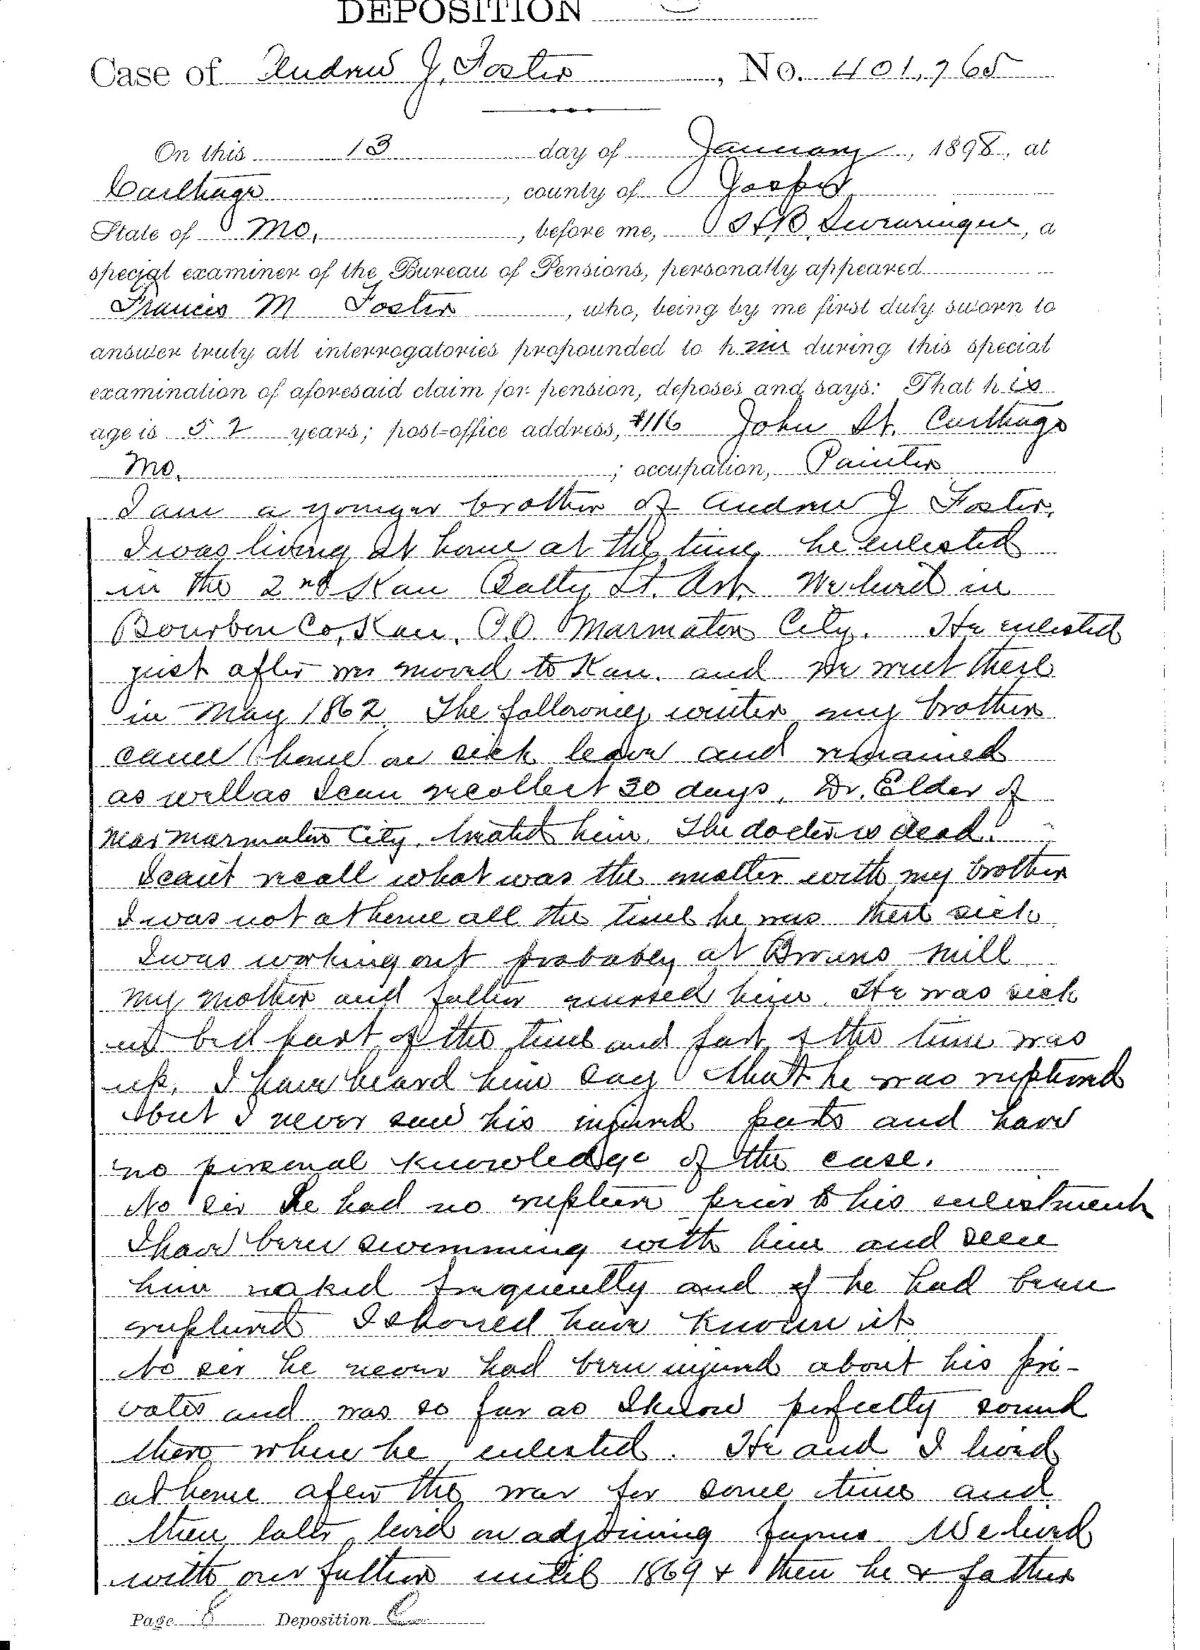 DEPOSITION
Case of Andrew J. Foster, No. 401,765
On this 13 day of January, 1898, at
Carthage, county of Jasper
State of Mo., before me, a
special examiner of the Bureau of Pensions, personally appeared
Francis M Foster, who, being by me first duly sworn to
answer truly all interrogatories propounded to him during this special
examination of aforesaid claim for pension, deposes and says: That his
age is 52 years; post-office address, #116 John St. Carthage
Mo. ; occupation, Painter
I am a younger brother of Andrew J Foster.
I was living at home at the time he enlisted
in the 2nd Kan Batty Lt. Art. We lived in
Bourbon Co, Kan. P.O. Marmaton City. He enlisted
just after we moved to Kan. and we went there
in May 1862. The following winter my brother
came home on sick leave and remained
as well as I can recollect 30 days. Dr. Elder of
near Marmaton City. treated him. The doctor is dead.
I can't recall what was the matter with my brother
I was not at home all the time he was there sick
I was working out probably at Browns mill
my mother and father nursed him. He was sick
in bed part of the time and part of the time was
up. I have heard him say that he was ruptured
but I never saw his injured parts and have
no personal knowledge of the case.
No sir he had no rupture prior to his enlistment
I have been swimming with him and seen
him naked frequently and if he had been
ruptured I should have known it
No sir he never had been injured about his pri-
vates and was so far as I know perfectly sound
there when he enlisted. He and I lived
at home after the war for some time and
then later lived on adjoining farms. We lived
with our father until 1869 & then he & father
Page 8 Deposition C